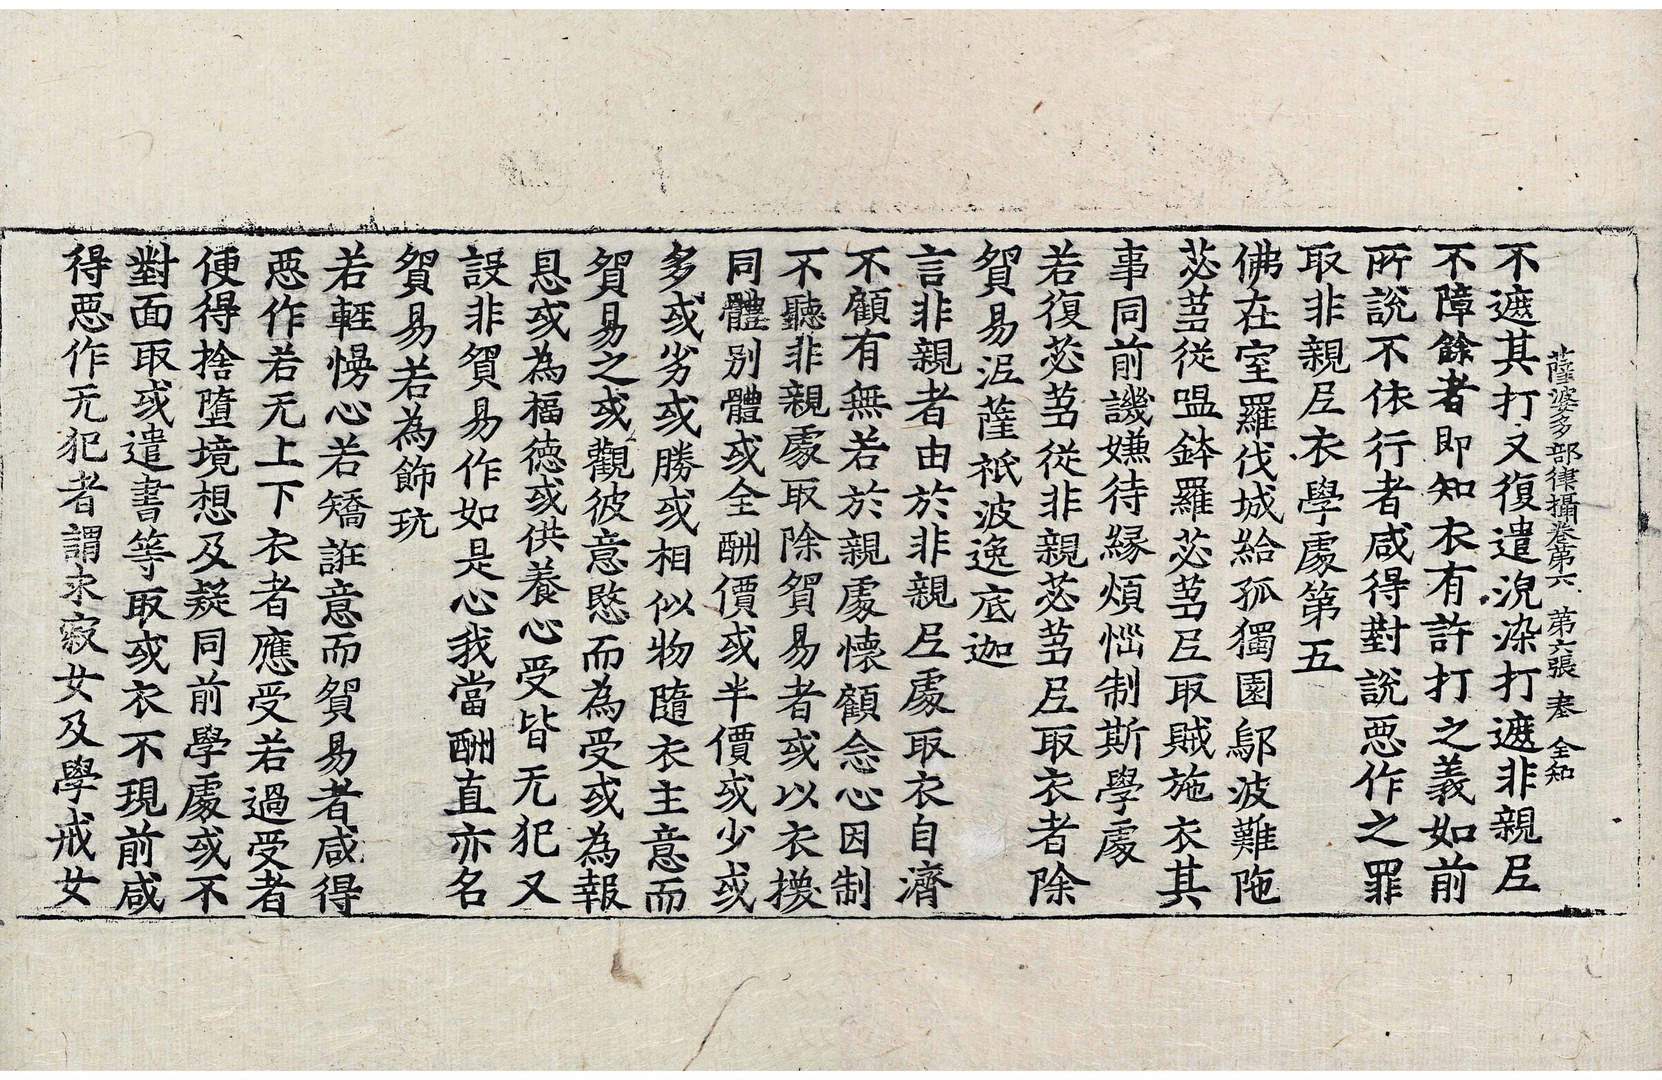 薩波多部律攝卷第六　第六張　夲　仝知
不遮其打又復遣浣染打遮非親尼
不障餘者即知衣有許打之義如前
所說不依行者咸得對說惡作之罪
取非親尼衣學處第五
佛在室羅伐城給孤獨園鄔波難陁
苾芻從嗢鉢羅苾芻尼取賊施衣其
事同前譏嫌待緣煩惱制斯學處
若復苾芻從非親苾芻尼取衣者除
貿易泥薩祇波逸底迦
言非親者由於非親尼處取衣自濟
不顧有無若於親處懷顧念心因制
不聽非親處取除貿易者或以衣換
同體別體或全酬價或半價或少或
多或劣或勝或相似物隨衣主意而
貿易之或觀彼意愍而為受或為報
恩或為福德或供養心受皆无犯又
設非貿易作如是心我當酬直亦名
貿易若為飾玩
若輕慢心若矯誑意而貿易者咸得
惡作若无上下衣者應受若過受者
便得捨墮境想及疑同前學處或不
對面取或遣書等取或衣不現前咸
得惡作无犯者謂求寂女及學戒女